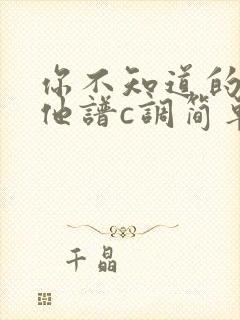 你不知道的
他譜c調简单
千晶